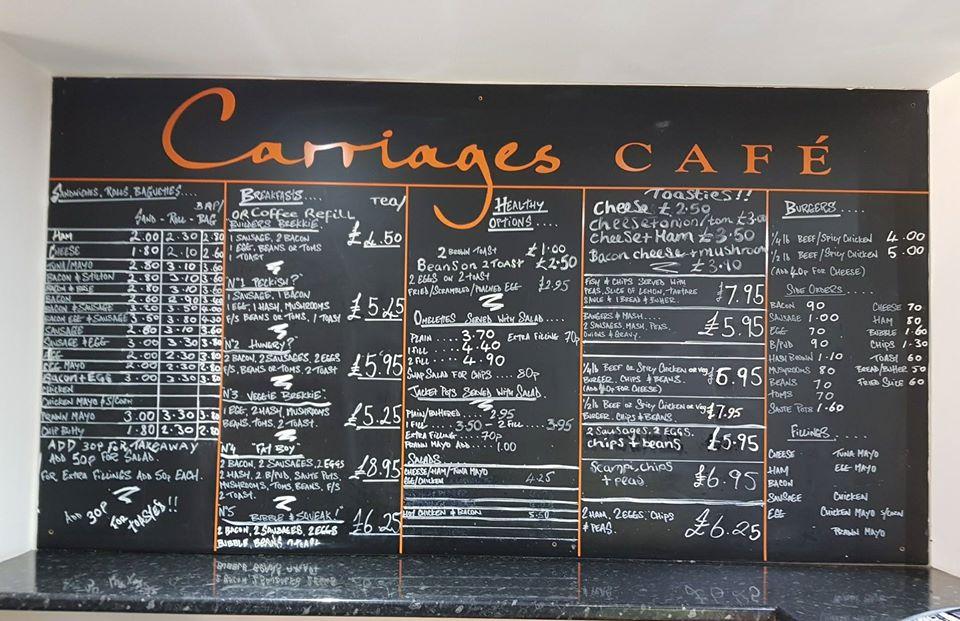 Carriages CAFÉ
SANDWICHES, ROLLS, BAGUETTES....
SAND - ROLL - BAG
HAM 2.00 2.30 2.80
CHEESE 1.80 2.10 2.60
TUNA/MAYO 2.80 3.10 3.60
BACON & STILTON
BACON & BRIE 2.80 3.10
BACON 2.60 2.90
BACON & SAUSAGE 3.00 3.30
BACON EGG & SAUSAGE 3.50
SAUSAGE 2.80 3.10
SAUSAGE & EGG 3.00 3.30 3.80
EGG 2.00 2.30
EGG MAYO 2.00 2.30 2.80
BACON & EGG 3.00 3.30 3.80
CHICKEN
CHICKEN MAYO S/CORN
PRAWN MAYO 3.00 3.30 3.80
CHIP BUTTY 1.80 2.30 2.80
ADD 30p FOR TAKEAWAY
ADD 50p FOR SALAD.
FOR EXTRA FILLINGS ADD 50p EACH.
ADD 30p FOR TOASTIES!!
BREAKFASTS.... TEA/
OR Coffee Refill
BUILDERS BREKKIE.
1 SAUSAGE, 2 BACON £4.50
1 EGG, BEANS OR TOMS
1 TOAST
No1 PECKISH?
1 SAUSAGE, 1 BACON £5.25
1 EGG, 1 HASH, MUSHROOMS
F/S BEANS OR TOMS, 1 TOAST
No2 HUNGRY?
2 BACON, 2 SAUSAGES, 2 EGGS £5.95
F/S, BEANS OR TOMS, 2 TOAST
No3 VEGGIE BREKKIE.
1 EGG, 2 HASH, MUSHROOMS £5.25
BEANS, TOMS, 2 TOAST.
No4 'FAT BOY'
2 BACON, 2 SAUSAGES, 2 EGGS £8.95
2 HASH, 2 B/PUD, SAUTE POTS,
MUSHROOMS, TOMS, BEANS, F/S
2 TOAST.
No5 BUBBLE & SQUEAK! £6.25
2 BACON, 2 SAUSAGES, 2 EGGS
BUBBLE, BEANS,
HEALTHY
OPTIONS....
2 BROWN TOAST £1.00
Beans on 2 TOAST £2.50
2 EGGS ON 2 TOAST
FRIED/SCRAMBLED/POACHED EGG £2.95
OMELETTES SERVED WITH SALAD....
PLAIN.... 3.70 EXTRA FILLING 70p
1 FILL.... 4.40
2 FILL.... 4.90
SWAP SALAD FOR CHIPS.... 80p
JACKET POTS SERVED WITH SALAD.
PLAIN/BUTTERED... 2.95
1 FILL... 3.50 - 2 FILL... 3.95
EXTRA FILLING... 70p
PRAWN MAYO ADD... 1.00
SALADS
CHEESE/HAM/TUNA MAYO
EGG/CHICKEN 4.25
HOT CHICKEN & BACON 5.50
TOASTIES!!
Cheese £2.50
cheese+onion/tom £3.00
cheese+Ham £3.50
Bacon cheese + mushroom
£3.10
FISH & CHIPS SERVED WITH £7.95
PEAS, SLICE OF LEMON, TARTARE
SAUCE & 1 BREAD & BUTTER.
BANGERS & MASH.... £5.95
2 SAUSAGES, MASH, PEAS,
ONIONS & GRAVY.
1/4 lb BEEF OR SPICY CHICKEN OR VEG £6.95
BURGER, CHIPS & BEANS.
(ADD 40p FOR CHEESE)
1/2 lb BEEF OR SPICY CHICKEN OR VEG £7.95
BURGER, CHIPS & BEANS
2 Sausages, 2 EGGS, £5.95
chips + beans
Scampi, chips £6.95
+ peas
2 HAM, 2 EGGS, CHIPS £6.25
& PEAS.
BURGERS....
1/4 lb BEEF/SPICY CHICKEN 4.00
1/2 lb BEEF/SPICY CHICKEN 5.00
(ADD 40p FOR CHEESE)
SIDE ORDERS...
BACON 90 CHEESE 70
SAUSAGE 1.00 HAM 80
EGG 70 BUBBLE 1.60
B/PUD 90 CHIPS 1.30
HASH BROWN 1.10 TOAST 60
MUSHROOMS 80 BREAD/BUTTER 50
BEANS 70 FRIED SLICE 60
TOMS 70
SAUTE POTS 1.60
FILLINGS...
CHEESE TUNA MAYO
HAM EGG MAYO
BACON
SAUSAGE CHICKEN
EGG CHICKEN MAYO S/CORN
PRAWN MAYO